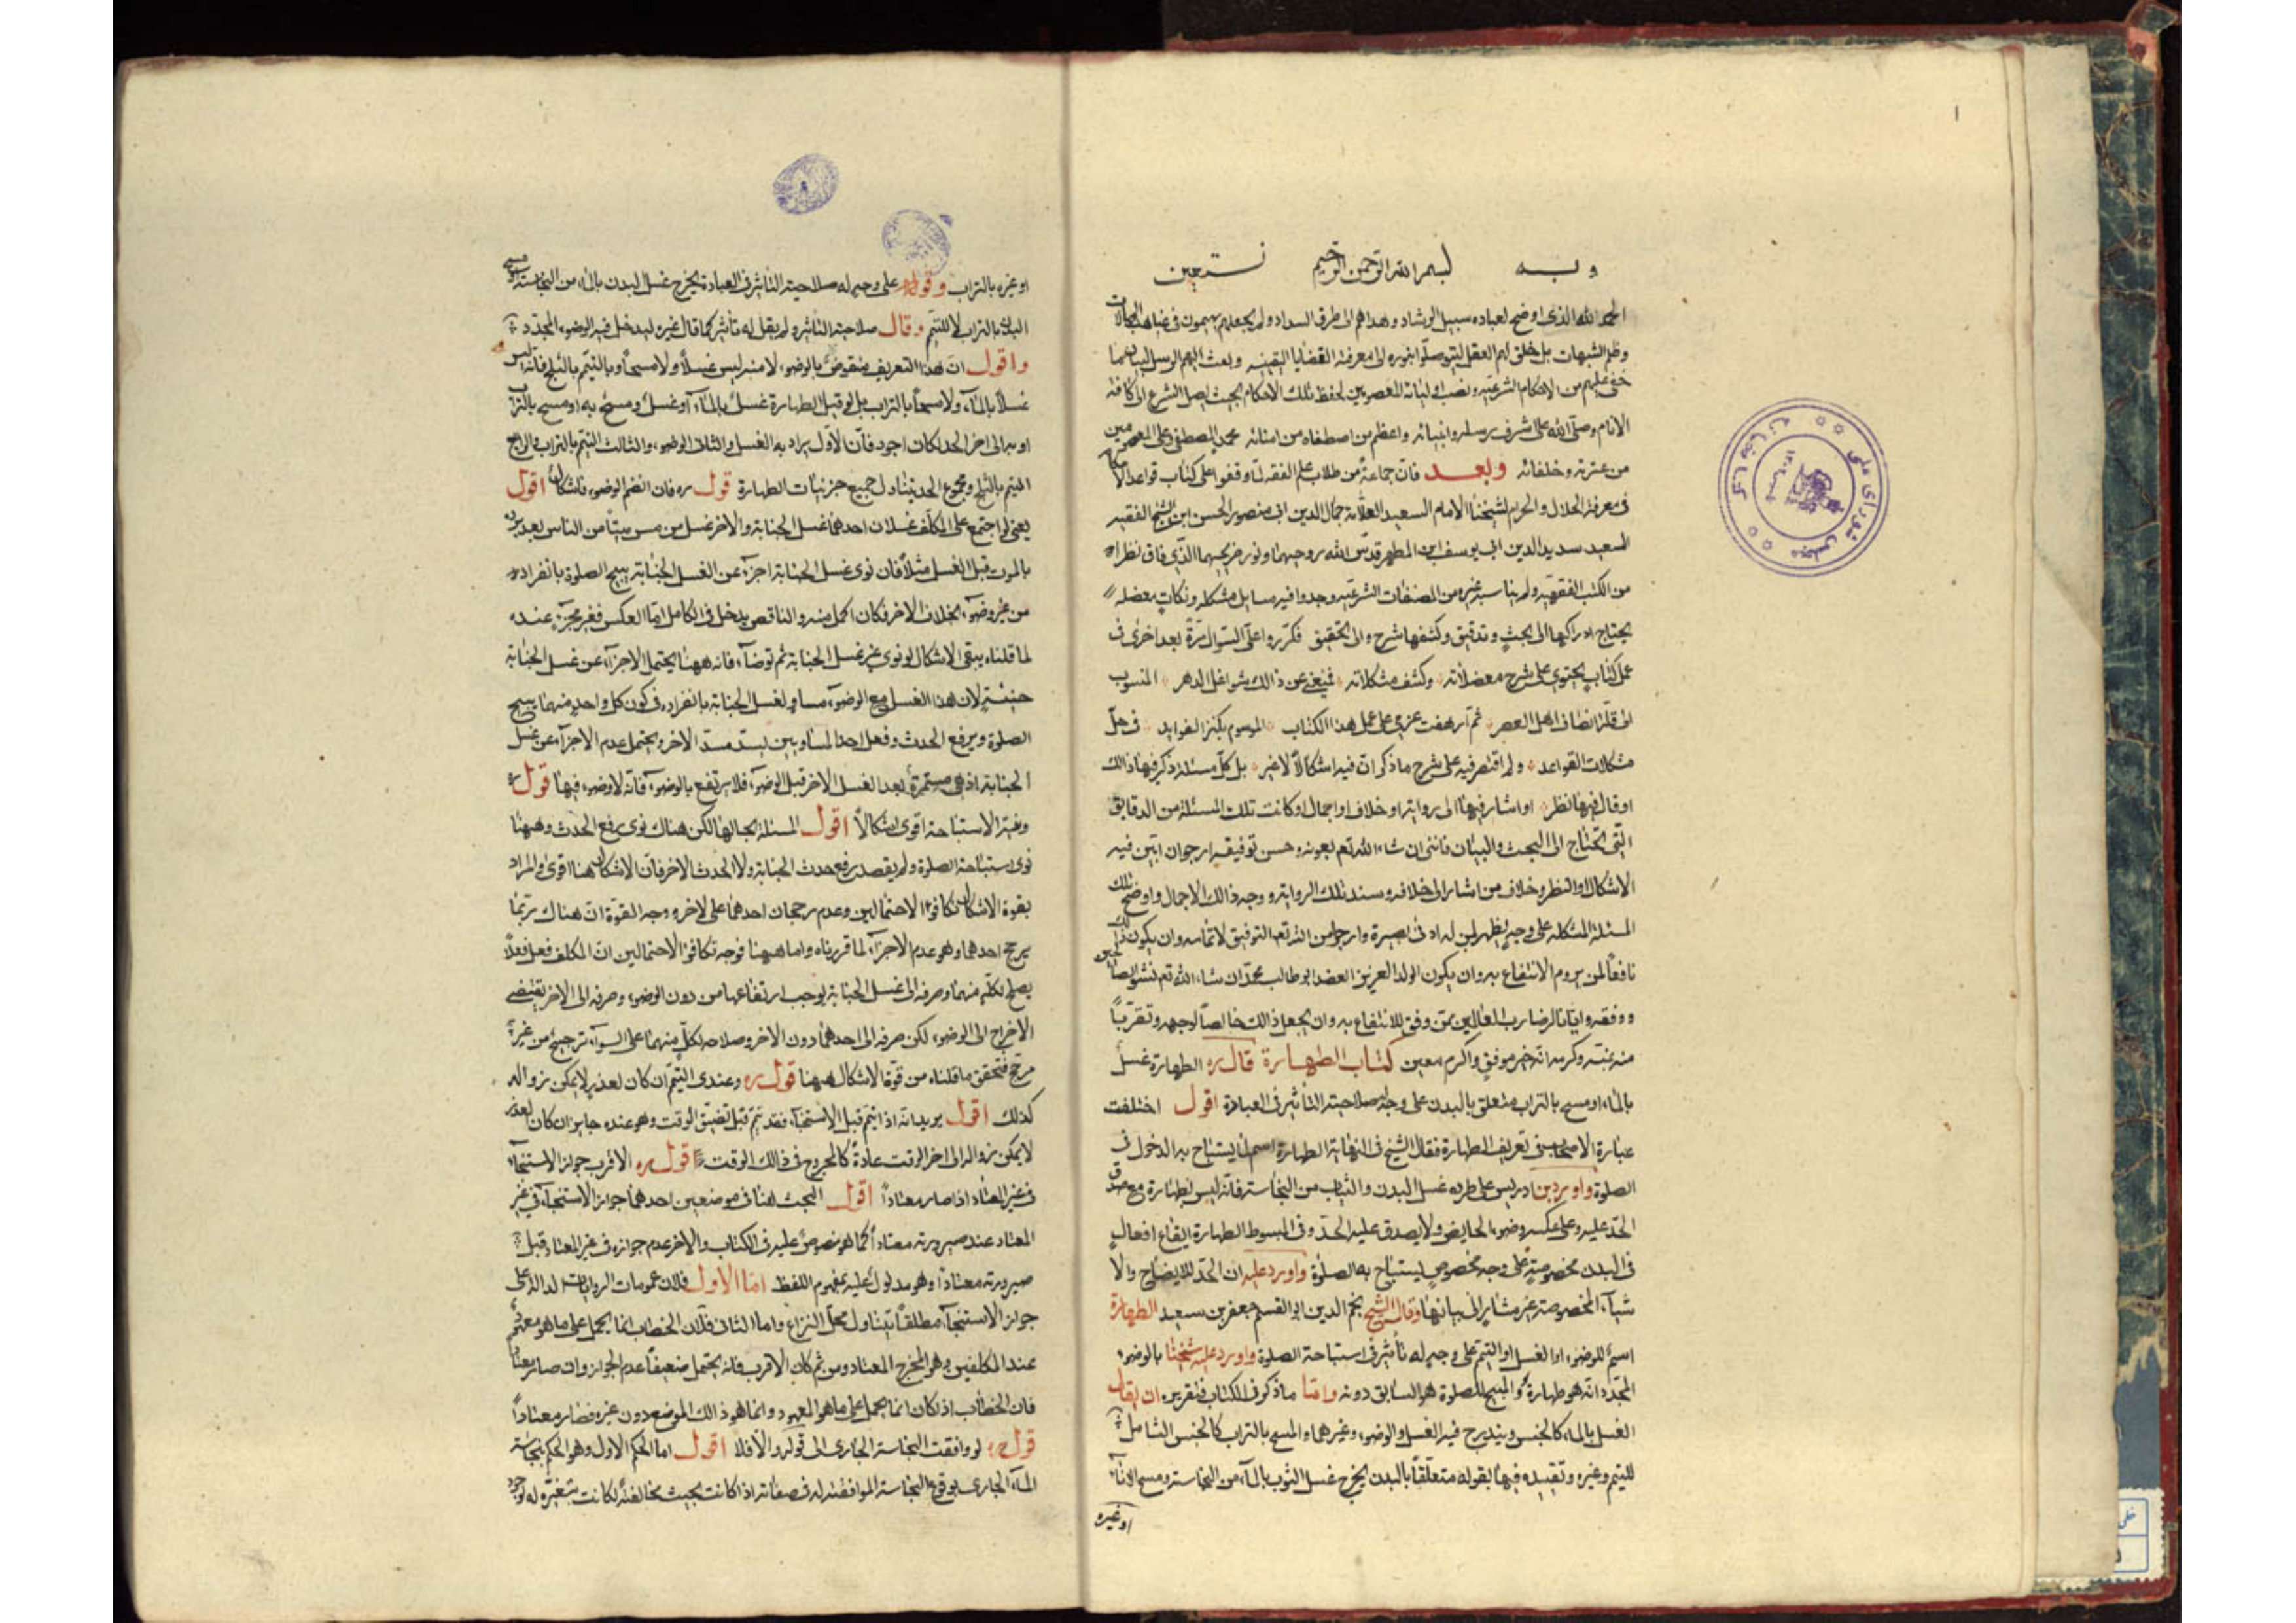 ١
وبه بسم الله الرحمن الرحيم نستعين
الحمد لله الذى اوضح لعباده سبيل الرشاد وهداهم الى طرق السداد ولم يجعلهم يهيمون فى غياهب الجهالات
وظلم الشبهات بل خلق لهم العقل ليتوصلوا بنوره الى معرفة القضايا اليقينيه وبعث اليهم الرسل لبيان ما
خفى عليهم من الاحكام الشرعيه ونصب اوليائه المعصومين لحفظ تلك الاحكام بحيث يصل الشرع الى كافة
الانام وصلى الله على اشرف رسله وانبيائه واعظم من اصطفاه من امنائه محمد المصطفى وعلى المعصومين
من عترته وخلفائه وبعد فان جماعة من طلاب علم الفقه لما وقفوا على كتاب قواعد الاحكام
فى معرفة الحلال والحرام لشيخنا الامام السعيد العلامة جمال الدين ابى منصور الحسن ابن الشيخ الفقيه
السعيد سديد الدين ابى يوسف ابن المطهر قدس الله روحيهما ونور ضريحيهما الذى فاق نظراءه
من الكتب الفقهيه ولم يناسبه غيره من المصنفات الشرعيه وجدوا فيه مسايل مشكله ونكات معضله
يحتاج ادراكها الى بحث وتدقيق وكشفها شرح والى تحقيق فكرروا على السوال مرة بعد اخرى فى
عمل كتاب يحتوى على شرح معضلاته وكشف مشكلاته فمنعنى عن ذالك شواغل الدهر المنسوب
الى قلة انصاف اهل العصر ثم ارهفت عزمى على عمل هذا الكتاب الموسوم بكنز الفوايد فى حل
مشكلات القواعد ولم اقتصر فيه على شرح ما ذكر ان فيه اشكالا لا غير بل كل مسئلة ذكر فيها ذالك
او قال فيها نظر او اشار فيها الى رواية او خلاف او اجمال او كانت تلك المسئلة من الدقايق
التى تحتاج الى البحث والبيان فاننى ان شاء الله تعم بعونه وحسن توفيقه ارجو ان ابين فيه
الاشكال او النظر وخلاف من اشار الى خلافه وسند تلك الرواية ووجه ذالك الاجمال واوضح تلك
المسئلة المشكله على وجه يظهر لمن له ادنى بصيرة وارجو من الله تعم التوفيق لاتمامه وان يكون ذلك
نافعا لمن يروم الانتفاع به وان يكون الولد العزيز العضد ابو طالب محمد ان شاء الله تعم
ووفقه وايانا لرضا رب العالمين ممن وفق للانتفاع به وان يجعل ذالك خالصا لوجهه وتقربا
منه بمنه وكرمه انه خير موفق واكرم معين كتاب الطهارة قال ره الطهارة غسل
بالماء او مسح بالتراب متعلق بالبدن على وجه له صلاحية التأثير فى العبادة اقول اختلفت
عبارة الاصحاب فى تعريف الطهارة فقال الشيخ فى النهاية الطهارة اسم لما يستباح به الدخول فى
الصلوة واورد بن ادريس على طرده غسل البدن والثياب من النجاسة فانه ليس بطهارة مع صدق
الحد عليه وعلى عكسه وضوء الحايض ولا يصدق عليه الحد وفى المبسوط الطهارة ايقاع افعال
فى البدن مخصوصة على وجه مخصوص يستباح به الصلوة واورد عليه ان الحد للايضاح والا
شياء المخصوصة غير مشار الى بيانها وقال الشيخ نجم الدين ابو القسم جعفر بن سعيد الطهارة
اسم للوضوء او الغسل او التيمم على وجه له تأثير فى استباحة الصلوة واورد عليه شيخنا بالوضوء
المجدد انه هو طهارة والمبيح للصلوة هو السابق دونه واما ما ذكر فى الكتاب فتقريره ان يقال
الغسل بالماء كالجنس ويندرج فيه الغسل والوضوء وغيرهما والمسح بالتراب كالجنس الشامل
للتيمم وغيره وتقييده فيها بقوله متعلقا بالبدن يخرج غسل الثوب بالماء من النجاسة ومسح الاناء
او غيره
او غيره بالتراب وقوله على وجه له صلاحية التأثير فى العبادة يخرج غسل البدن بالماء من النجاسة او مسح
البدن بالتراب لا للتيمم وقال صلاحية التأثير ولم يقل له تأثير كما قال غيره ليدخل فيه الوضوء المجدد
واقول ان هذا التعريف منقوض بالوضوء لا منه ليس غسلا ولا مسحا وبالتيمم بالثلج فانه ليس
غسلا بالماء ولا مسحا بالتراب بل لو قيل الطهارة غسل بالماء او غسل ومسح به او مسح بالتراب
او به الى اخر الحد لكان اجود فان الاول يراد به الغسل والثانى الوضوء والثالث التيمم بالتراب والرابع
التيمم بالثلج ومجموع الحد يتناول جميع جزئيات الطهارة قول ره فان انضم الوضوء فاشكال اقول
يعنى لو اجتمع على المكلف غسلان احدهما غسل الجنابة والاخر غسل من مس ميتا من الناس بعد برده
بالموت قبل الغسل مثلا فان نوى غسل الجنابة اجزاء عن الغسل الجنابة يبيح الصلوة بانفراده
من غير وضوء بخلاف الاخر فكان اكمل منه والناقص يدخل فى الكامل اما العكس فغير مجزء عنده
لما قلناه يبقى الاشكال لو نوى غير غسل الجنابة ثم توضاء فانه ههنا يحتمل الاجزاء عن غسل الجنابة
حينئذ لان هذا الغسل مع الوضوء مساو لغسل الجنابة بانفراده فى كون كل واحد منهما يبيح
الصلوة ويرفع الحدث وفعل احد المتساويين يسد مسد الاخر ويحتمل عدم الاجزاء عن غسل
الجنابة اذ هى مستمرة بعد الغسل الاخر قبل الوضوء فلا يرتفع بالوضوء فانه لا وضوء فيها قول ره
ونية الاستباحة اقوى اشكالا اقول المسئلة بحالها لكن هناك نوى رفع الحدث وههنا
نوى استباحة الصلوة ولم يقصد رفع حدث الجنابة ولا الحدث الاخر فان الاشكال هنا اقوى والمراد
بقوة الاشكال تكافؤ الاحتمالين وعدم رجحان احدهما على الاخر ووجه القوة ان هناك ربما
يرجح احدهما وهو عدم الاجزاء لما قررناه واما ههنا فوجه تكافؤ الاحتمالين ان المكلف فعل فعلا
يصلح لكل منهما وصرفه الى غسل الجنابة يوجب ارتفاعها من دون الوضوء وصرفه الى الاخر يقتضى
الاخراج الى الوضوء لكن صرفه الى احدهما دون الاخر وصلاحه لكل منهما على السواء ترجيح من غير
مرجح فتحقق ما قلناه من قوة الاشكال ههنا قول ره وعندى التيمم ان كان لعذر لا يمكن زواله
كذلك اقول يريد انه اذا تيمم قبل الاستنجاء فقد تيمم قبل تضيق الوقت وهو عنده جايز ان كان لعذر
لا يمكن زواله الى اخر الوقت عادة كالجروح فى ذالك الوقت قول ره الاقرب جواز الاستنجاء
فى غير المعتاد اذا صار معتادا اقول البحث هنا فى موضعين احدهما جواز الاستنجاء فى غير
المعتاد عند صيرورته معتادا كما هو منصوص عليه فى الكتاب والاخر عدم جوازه فى غير المعتاد قبل
صيرورته معتادا وهو مدلول عليه بمفهوم اللفظ اما الاول فلان عمومات الروايات الدالة على
جواز الاستنجاء مطلقا يتناول محل النزاع واما الثانى فلان الخطاب انما يحمل على ما هو معهود
عند المكلفين وهو المخرج المعتاد ومن ثم كان الاقرب فانه يحتمل ضعيفا عدم الجواز وان صار معتادا
فان الخطاب اذ كان انما يحمل على ما هو المعهود وانما هو ذالك الموضع دون غيره فصار معتادا
قول ره لو وافقت النجاسة الجارى الى قوله والا فلا اقول اما الحكم الاول وهو الحكم بنجاسة
الماء الجارى بوقوع النجاسة الموافقة له فى صفاته اذا كانت بحيث مخالفته لكانت متغيرة له لوجود